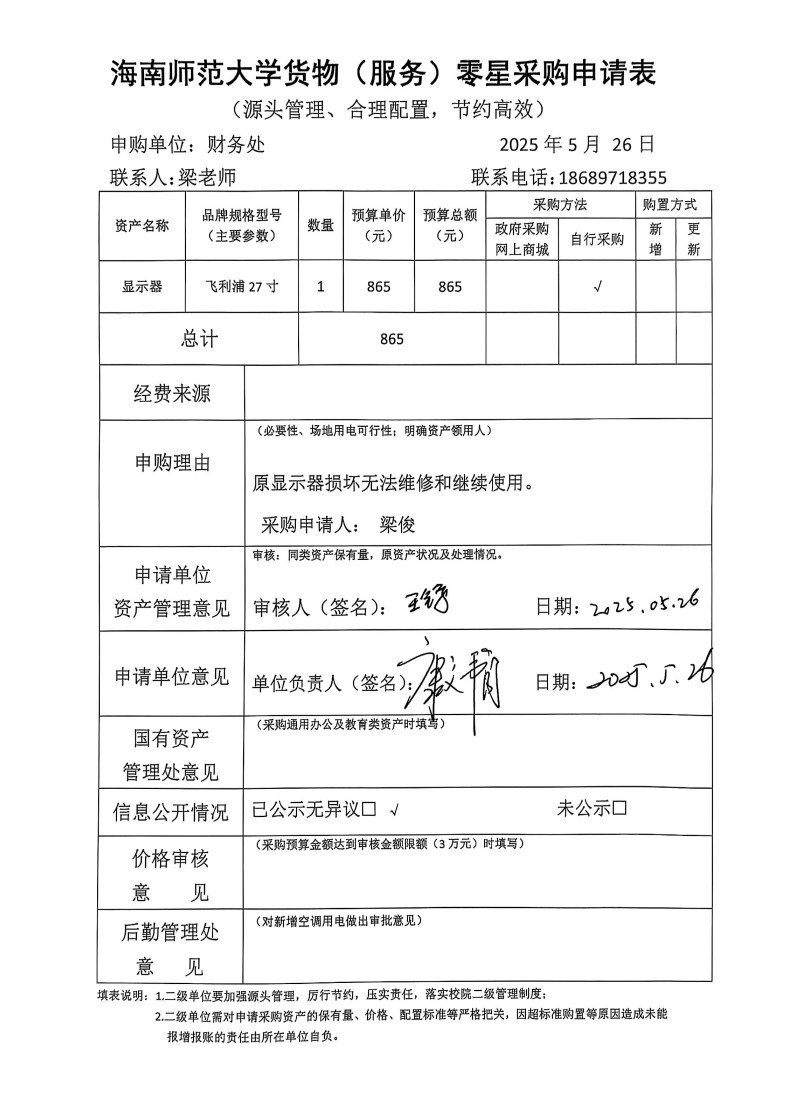 海南师范大学货物（服务）零星采购申请表
（源头管理、合理配置，节约高效）
申购单位：财务处 2025 年 5 月 26 日
联系人：梁老师 联系电话：18689718355
资产名称 品牌规格型号（主要参数） 数量 预算单价（元） 预算总额（元） 采购方法 购置方式
政府采购网上商城 自行采购 新增 更新
显示器 飞利浦 27 寸 1 865 865 √
总计 865
经费来源
申购理由
（必要性、场地用电可行性；明确资产领用人）
原显示器损坏无法维修和继续使用。
采购申请人： 梁俊
申请单位
资产管理意见
审核：同类资产保有量，原资产状况及处理情况。
审核人（签名）： 日期：2025.05.26
申请单位意见 单位负责人（签名）： 日期：2025.5.26
国有资产
管理处意见
（采购通用办公及教育类资产时填写）
信息公开情况 已公示无异议□ √ 未公示□
价格审核
意 见
（采购预算金额达到审核金额限额（3 万元）时填写）
后勤管理处
意 见
（对新增空调用电做出审批意见）
填表说明：1.二级单位要加强源头管理，厉行节约，压实责任，落实校院二级管理制度；
2.二级单位需对申请采购资产的保有量、价格、配置标准等严格把关，因超标准购置等原因造成未能
报增报账的责任由所在单位自负。